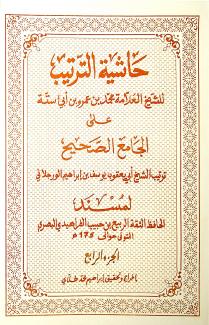 حاشية الترتيب
للشيخ العلامة محمد بن عمرو بن أبي ستة
على
الجامع الصحيح
ترتيب الشيخ أبي يعقوب يوسف بن إبراهيم الورجلاني
لمسند
الحافظ الثقة الربيع بن حبيب الفراهيدي البصري
المتوفى حوالي ١٧٥ هـ
الجزء الرابع
إخراج وتحقيق إبراهيم محمد طلاي